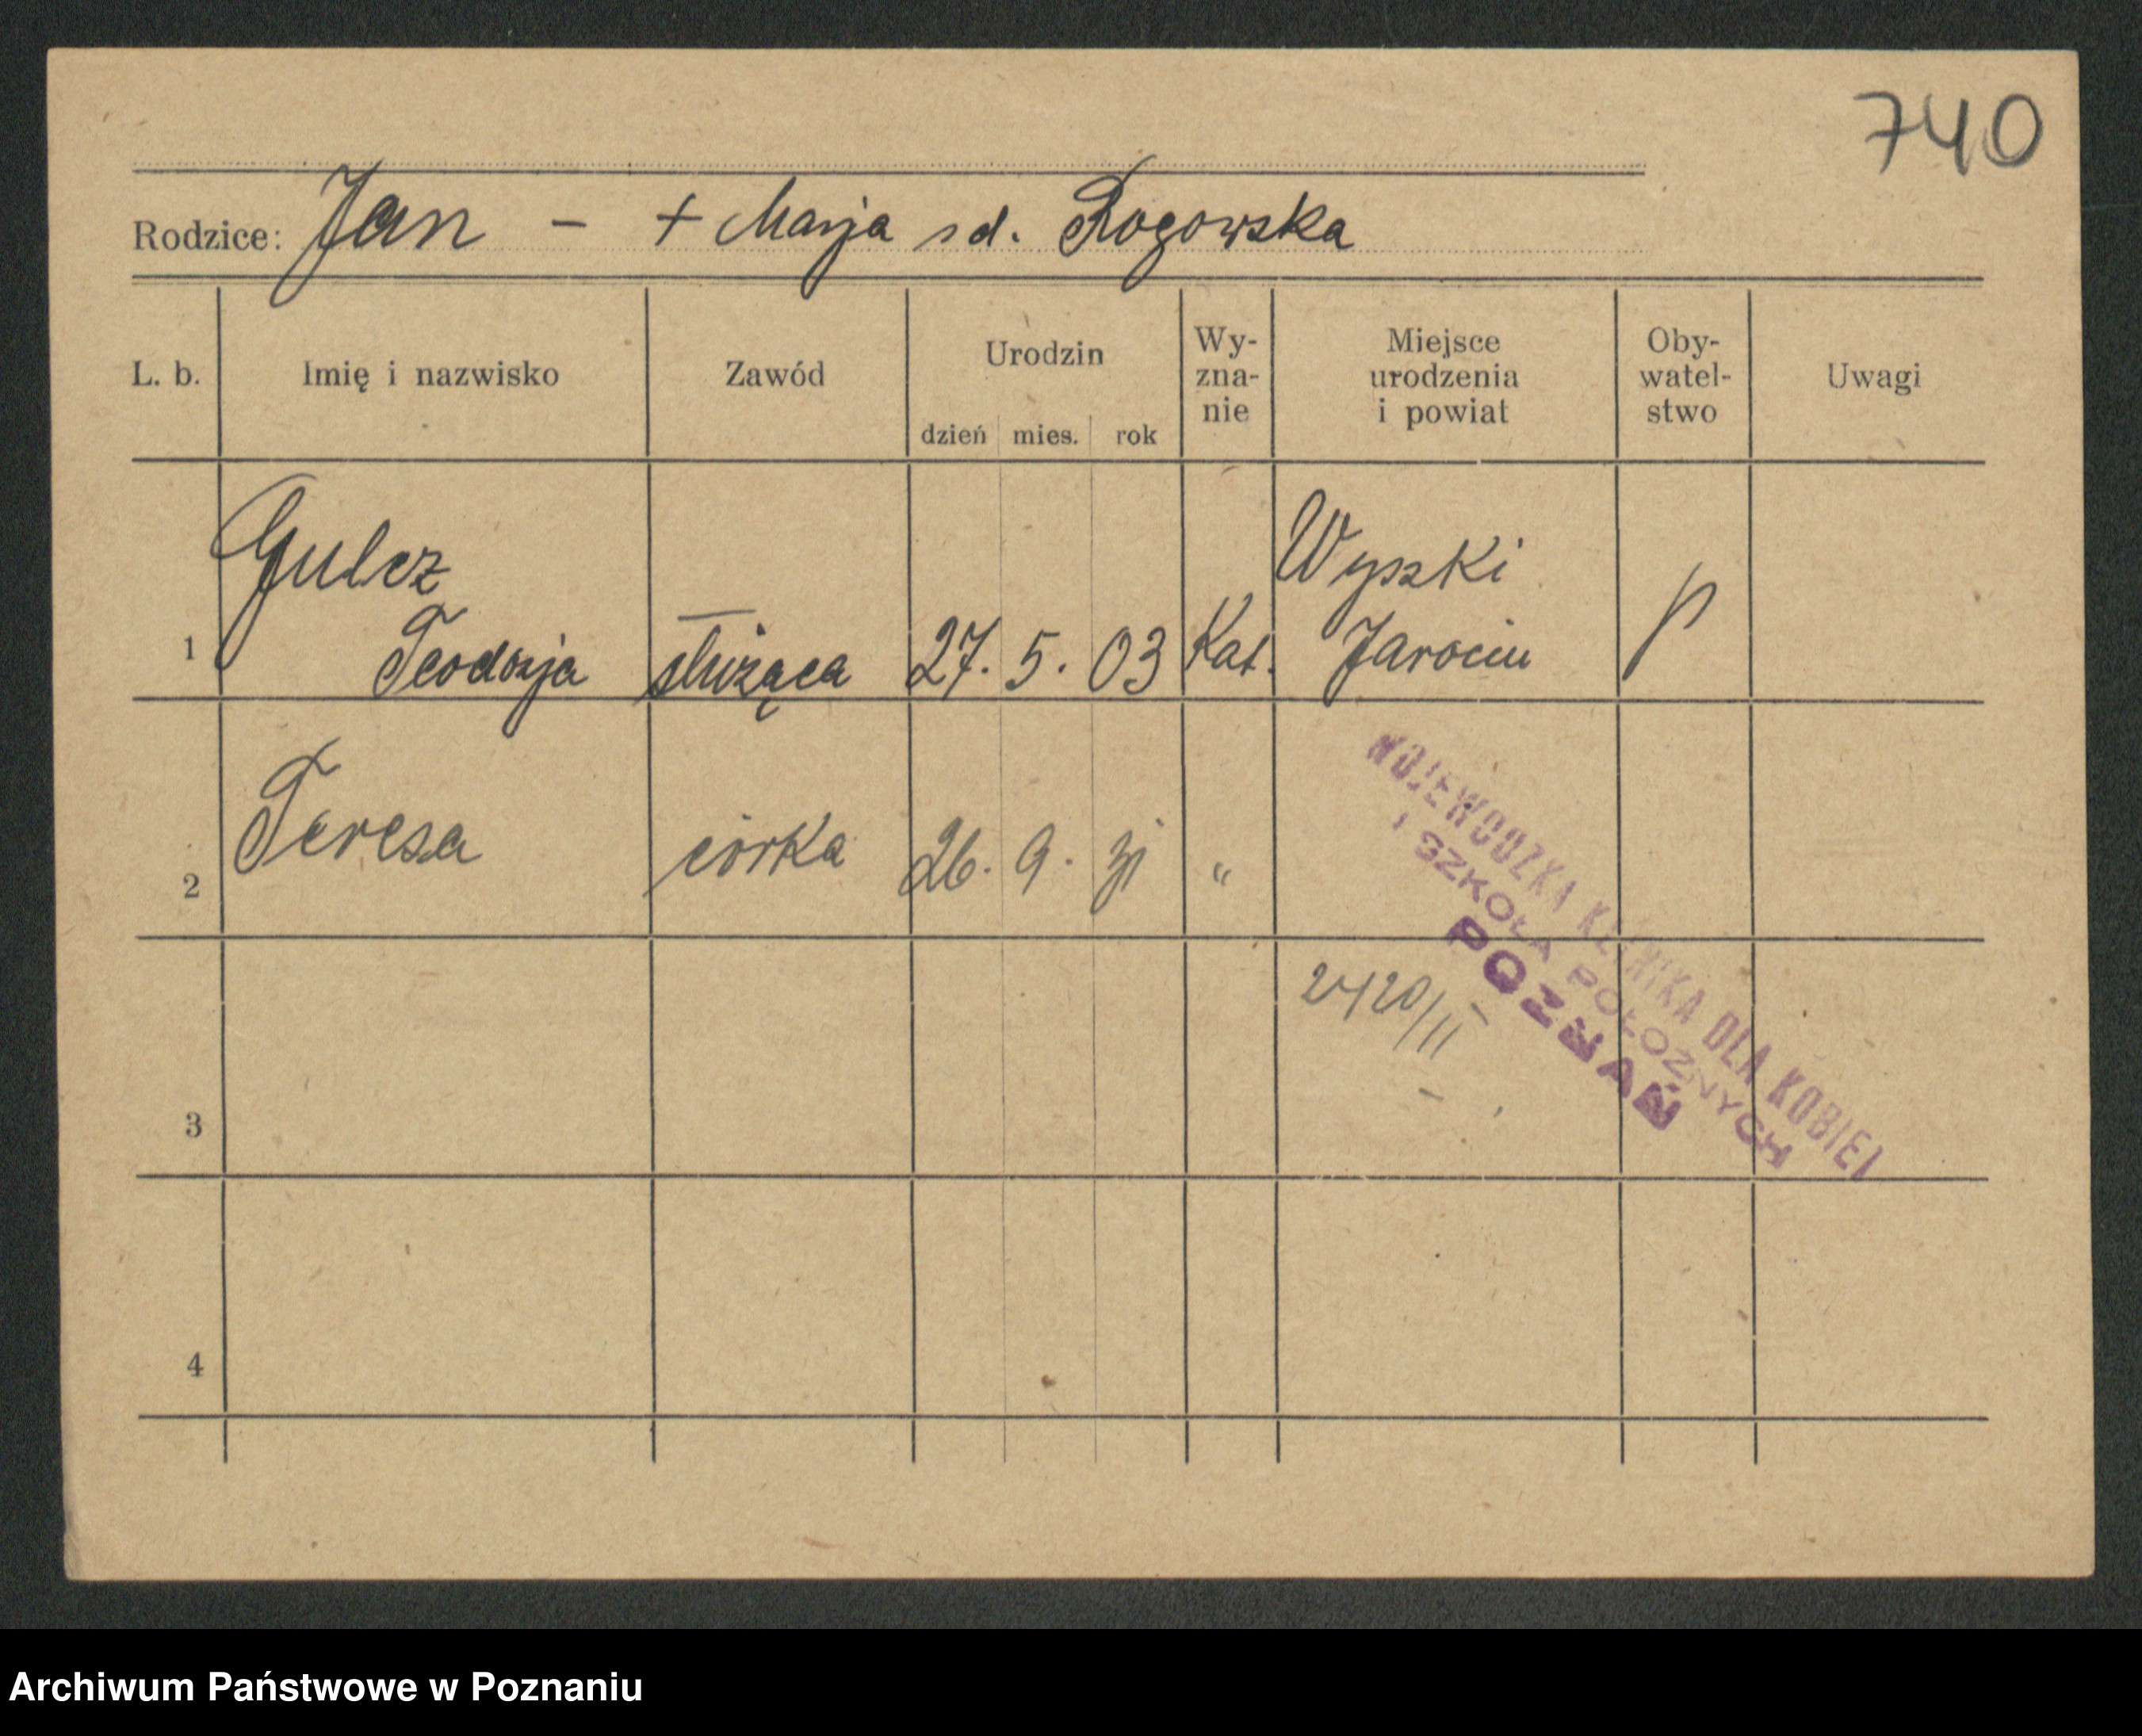 740
Rodzice: Jan - + Marja sd. Rogowska
L. b. Imię i nazwisko Zawód Urodzin Wy- Miejsce Oby- Uwagi
zna- urodzenia watel-
nie i powiat stwo
dzień mies. rok
Gulcz Wyszki
1 Teodozja służąca 27. 5. 03 Kat. Jarocin p
2 Teresa córka 26. 9. 31 "
WOJEWÓDZKA KLINIKA DLA KOBIET
I SZKOŁA POŁOŻNYCH
POZNAŃ
2420/II
3
4
Archiwum Państwowe w Poznaniu